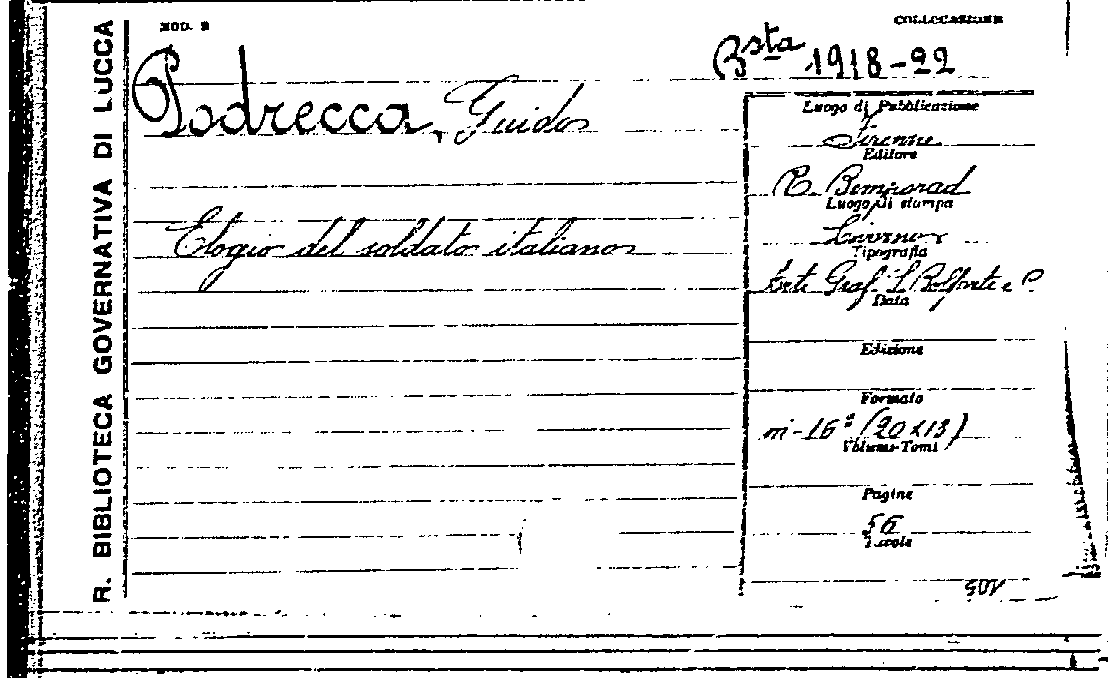 R. BIBLIOTECA GOVERNATIVA DI LUCCA
MOD. 2
COLLOCAZIONE
Bsta 1918-22
Podrecca, Guido
Elogio del soldato italiano
Luogo di Pubblicazione
Firenze
Editore
R. Bemporad
Luogo di stampa
Livorno
Tipografia
Arti Graf. S. Belforte e C.
Data
Edizione
Formato
in-16° (20x13)
Volumi-Tomi
Pagine
56
Tavole